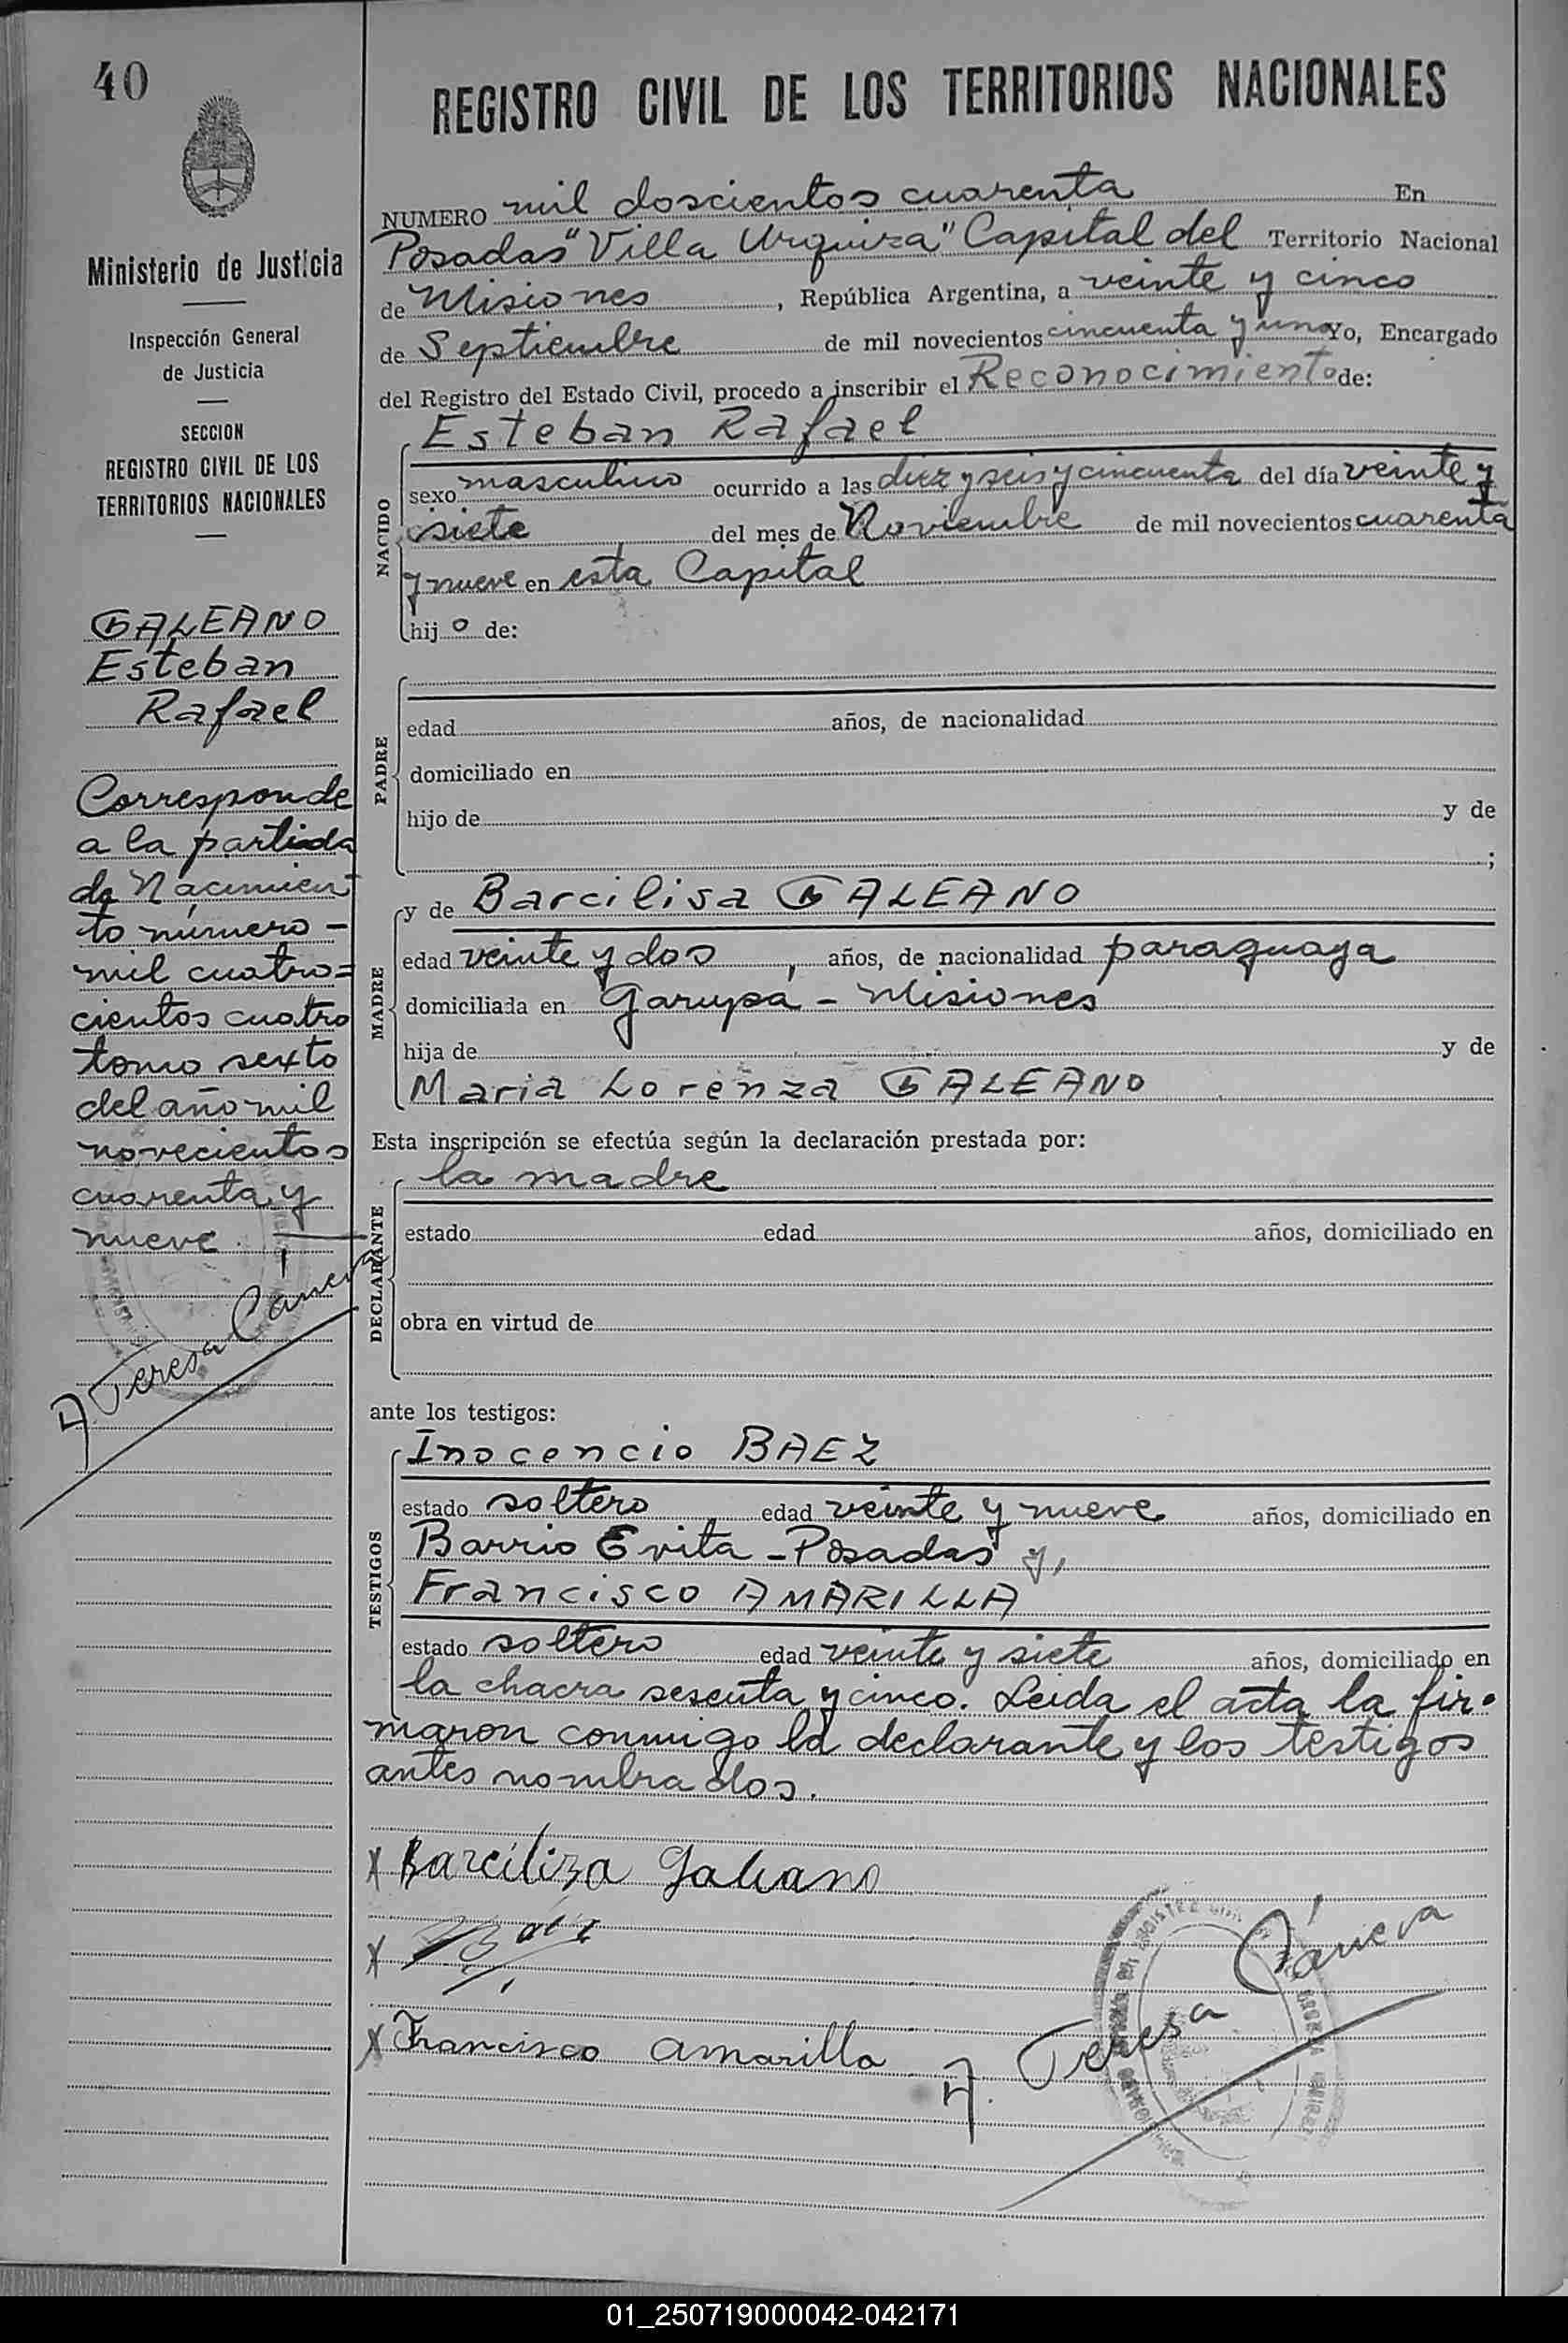 40
Ministerio de Justicia
Inspección General
de Justicia
SECCION
REGISTRO CIVIL DE LOS
TERRITORIOS NACIONALES
GALEANO
Esteban
Rafael
Corresponde
a la partida
de Nacimien
to número -
mil cuatro=
cientos cuatro
tomo sexto
del año mil
novecientos
cuarenta y
nueve.
A Teresa Cáneva
REGISTRO CIVIL DE LOS TERRITORIOS NACIONALES
NUMERO mil doscientos cuarenta En
Posadas "Villa Urquiza" Capital del Territorio Nacional
de Misiones, República Argentina, a veinte y cinco
de Septiembre de mil novecientos cincuenta y uno Yo, Encargado
del Registro del Estado Civil, procedo a inscribir el Reconocimiento de:
NACIDO
Esteban Rafael
sexo masculino ocurrido a las diez y seis y cincuenta del día veinte y
siete del mes de Noviembre de mil novecientos cuarenta
y nueve en esta Capital
hijo de:
PADRE
edad años, de nacionalidad
domiciliado en
hijo de y de
;
MADRE
y de Barcilisa GALEANO
edad veinte y dos, años, de nacionalidad paraguaya
domiciliada en Garupá - Misiones
hija de y de
Maria Lorenza GALEANO
Esta inscripción se efectúa según la declaración prestada por:
DECLARANTE
la madre
estado edad años, domiciliado en
obra en virtud de
ante los testigos:
TESTIGOS
Inocencio BAEZ
estado soltero edad veinte y nueve años, domiciliado en
Barrio Evita - Posadas y,
Francisco AMARILLA
estado soltero edad veinte y siete años, domiciliado en
la chacra sesenta y cinco. Leida el acta la fir-
maron conmigo la declarante y los testigos
antes nombrados.
X Barciliza Galeano
X
X Francisco Amarilla
A. Teresa Cáneva
01_250719000042-042171